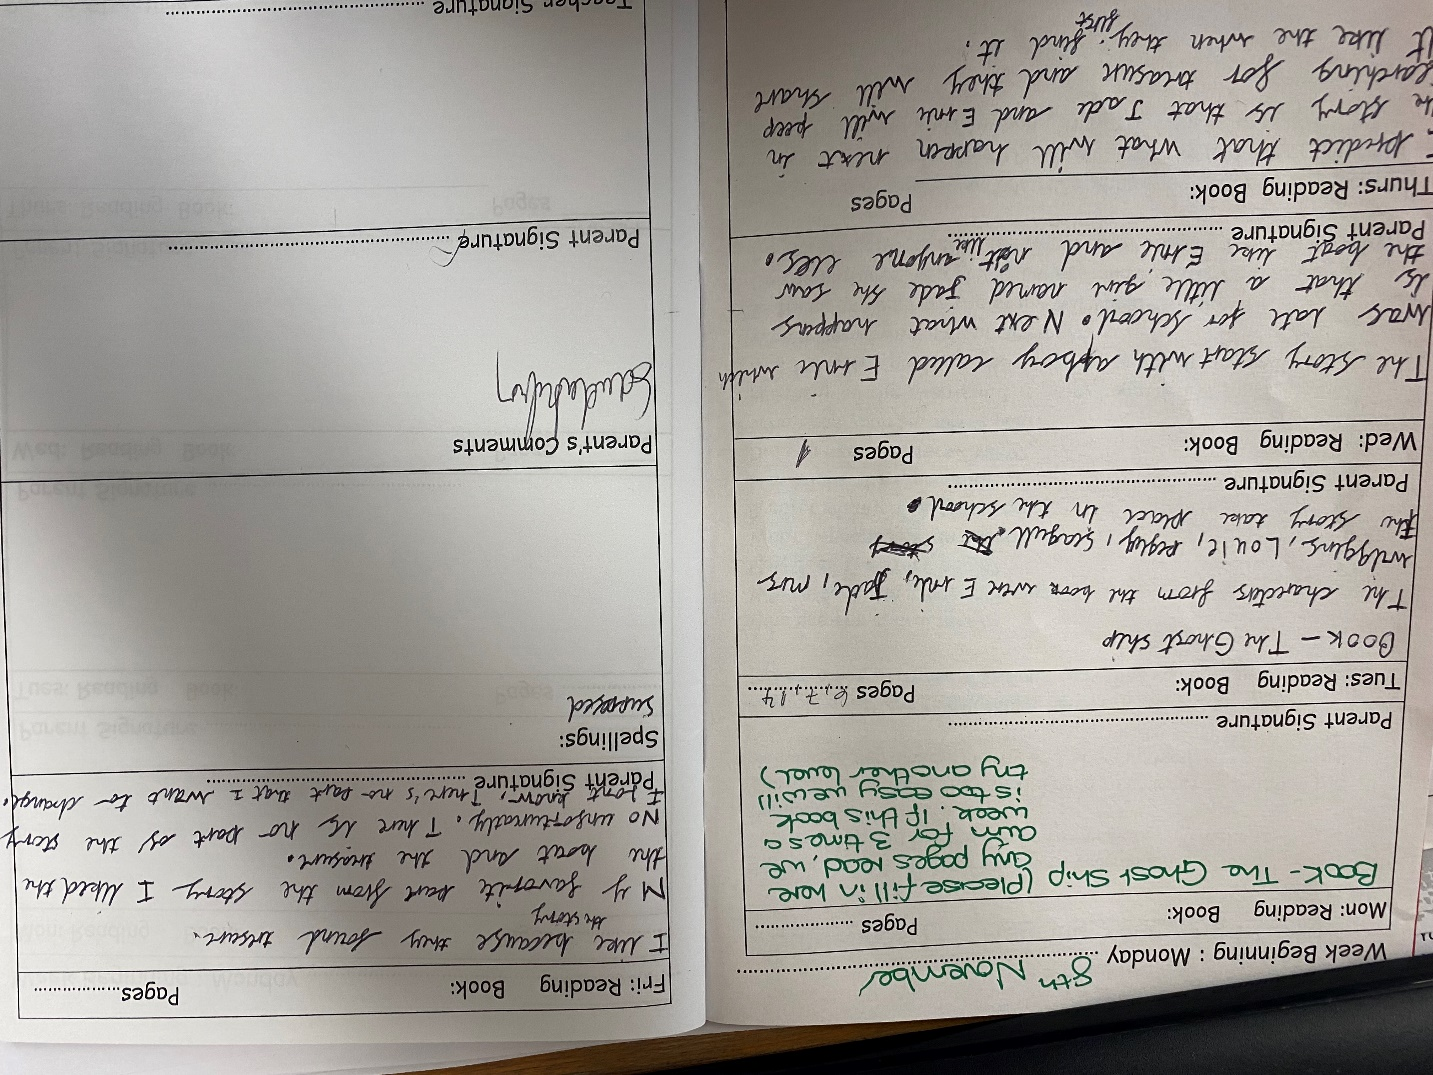 Week Beginning : Monday 8th November
Mon: Reading Book: Pages
Book - The Ghost Ship (Please fill in here
any pages read, we
aim for 3 times a
week. If this book
is too easy we will
try another level)
Parent Signature
Tues: Reading Book: Pages 6, 7, 14
Book - The Ghost ship
The charecters from the book were Ernie, Jade, mrs
wiggins, Louie, peguy, seagull.
The story take place in the school.
Parent Signature
Wed: Reading Book: Pages 1
The story start with a boy called Ernie which
was late for school. Next what happens
is that a little girl named Jade she saw
the boat like Ernie and not like anyone else.
Parent Signature
Thurs: Reading Book: Pages
I predict that what will happen next in
the story is that Jade and Ernie will peep
searching for treasure and they will share
it like the when they just find it.
Fri: Reading Book: Pages
I like the story because they found tresure.
My favorite part from the story I liked the
the boat and the tresure.
No unfortunatly. There is no part of the story
I dont know, There's no part that I want to change.
Parent Signature
Spellings:
supposed
Parent's Comments
Parent Signature
Teacher Signature